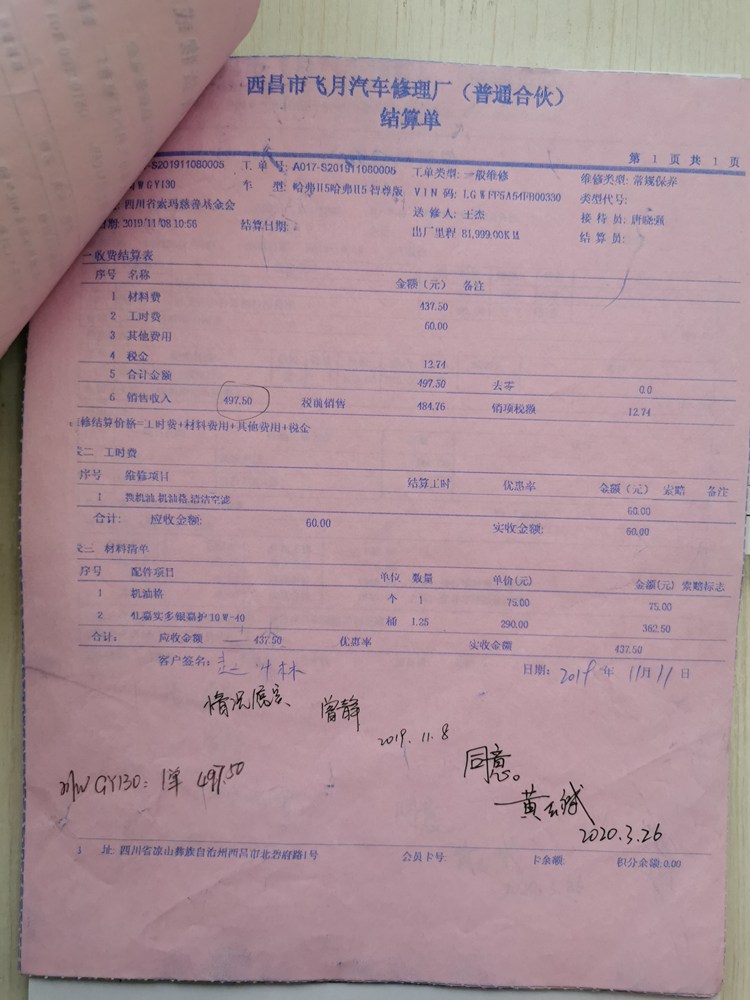 西昌市飞月汽车修理厂（普通合伙）
结算单
第 1 页 共 1 页
-S201911080005 工 单 号: A017-S201911080005 工单类型: 一般维修 维修类型: 常规保养
WGY130 车 型: 哈弗H5哈弗H5 智尊版 VIN 码: LGWFF5A54FB00330 类型代号:
四川省索玛慈善基金会 送 修 人: 王杰 接 待 员: 唐晓强
日期: 2019/11/08 10:56 结算日期: 出厂里程 81,999.00KM 结 算 员:
一 收费结算表
序号 名称 金额（元） 备注
1 材料费 437.50
2 工时费 60.00
3 其他费用
4 税金 12.74
5 合计金额 497.50 去零 0.0
6 销售收入 497.50 税前销售 484.76 销项税额 12.74
修结算价格=工时费+材料费用+其他费用+税金
二 工时费
序号 维修项目 结算工时 优惠率 金额（元） 索赔 备注
1 换机油 机油格 清洁空滤 60.00
合计: 应收金额: 60.00 实收金额: 60.00
三 材料清单
序号 配件项目 单位 数量 单价(元) 金额(元) 索赔标志
1 机油格 个 1 75.00 75.00
2 4L嘉实多银嘉护10W-40 桶 1.25 290.00 362.50
合计: 应收金额 437.50 优惠率 实收金额 437.50
客户签名: 日期: 2019年11月11日
情况属实 曾静
2019.11.8
同意。
川W GY130: 1单 497.50
黄
2020.3.26
址: 四川省凉山彝族自治州西昌市北碧府路1号 会员卡号: 卡余额: 积分余额:0.00